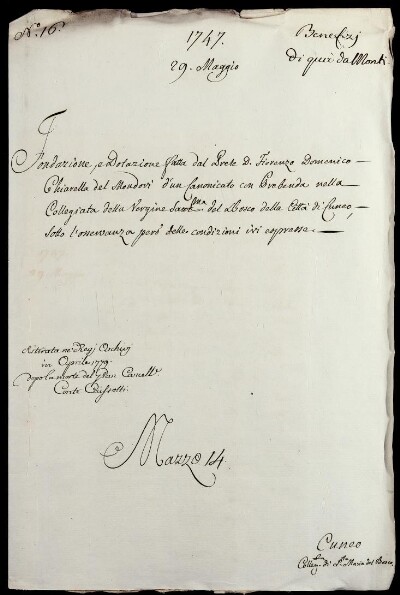 N.° 16.
1747.
29. Maggio
Benefizj
di quà da Monti
Fondazione, e Dotazione fatta dal Prete D. Fiorenzo Domenico
Chiarella del Mondovì d'un Canonicato con Prebenda nella
Collegiata della Vergine Sant.ma del Bosco della Città di Cuneo,
sotto l'osservanza però delle condizioni ivi espresse.
Ritirata ne' Regj Archivj
in Aprile 1779
dopo la morte del Gran Cancell.e
Conte
Mazzo 14
Cuneo
Colleg.ta di S.ta Maria del Bosco